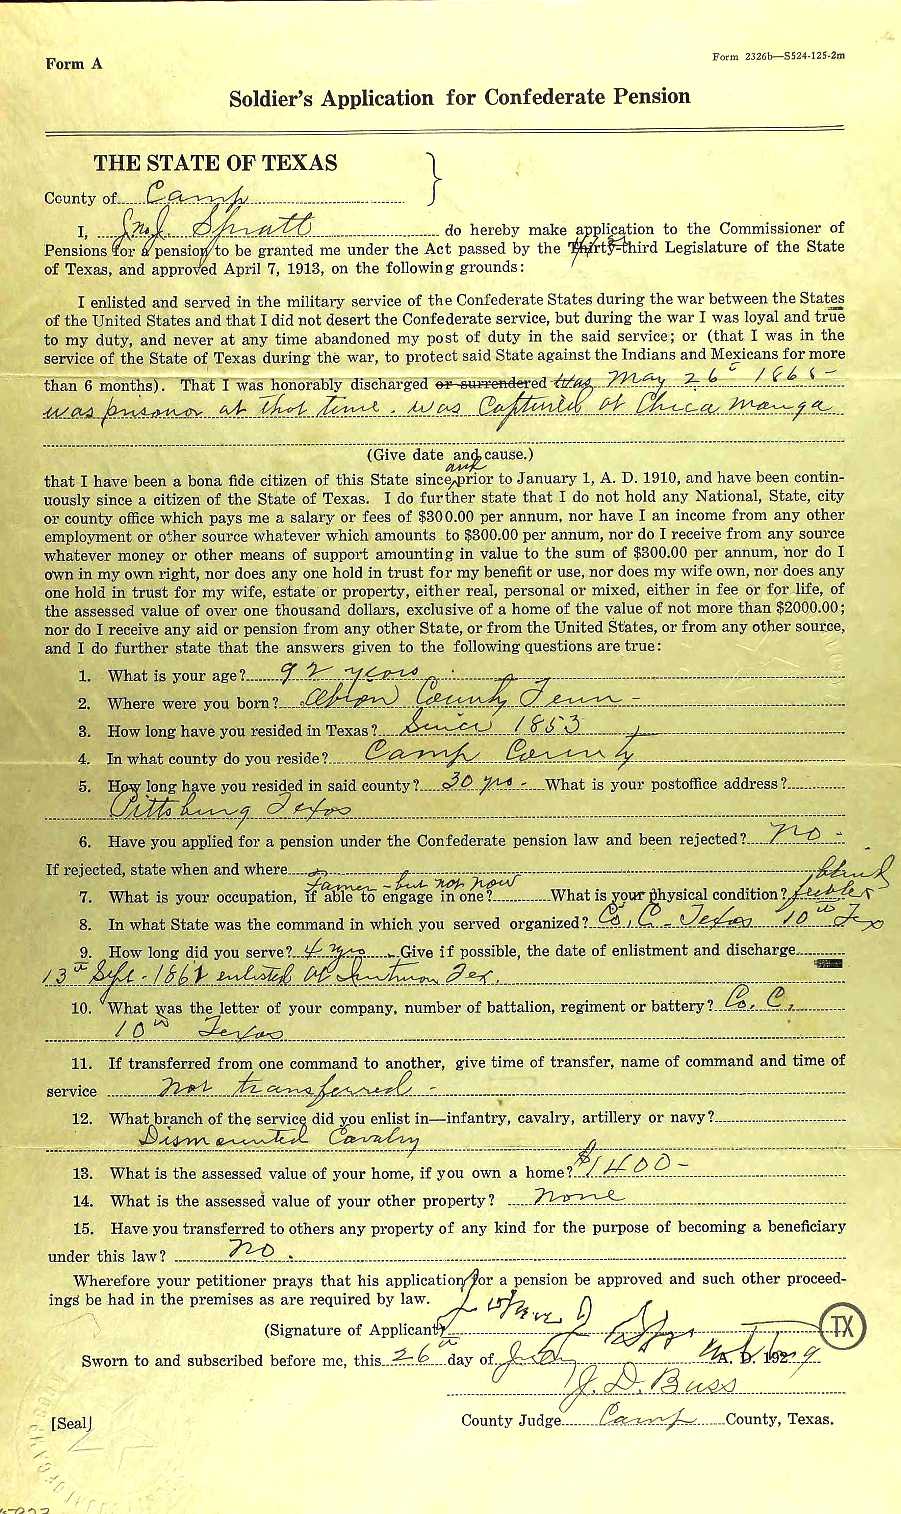 Form A
Form 2326b—S524-125-2m
Soldier's Application for Confederate Pension
THE STATE OF TEXAS
County of Camp
I, Jno J. Spratt do hereby make application to the Commissioner of
Pensions for a pension to be granted me under the Act passed by the Thirty-third Legislature of the State
of Texas, and approved April 7, 1913, on the following grounds:
I enlisted and served in the military service of the Confederate States during the war between the States
of the United States and that I did not desert the Confederate service, but during the war I was loyal and true
to my duty, and never at any time abandoned my post of duty in the said service; or (that I was in the
service of the State of Texas during the war, to protect said State against the Indians and Mexicans for more
than 6 months). That I was honorably discharged or surrendered was May 26th 1865 -
was prisonor at that time. was Captured at Chica manga
(Give date and cause.)
and
that I have been a bona fide citizen of this State since prior to January 1, A. D. 1910, and have been contin-
uously since a citizen of the State of Texas. I do further state that I do not hold any National, State, city
or county office which pays me a salary or fees of $300.00 per annum, nor have I an income from any other
employment or other source whatever which amounts to $300.00 per annum, nor do I receive from any source
whatever money or other means of support amounting in value to the sum of $300.00 per annum, nor do I
own in my own right, nor does any one hold in trust for my benefit or use, nor does my wife own, nor does any
one hold in trust for my wife, estate or property, either real, personal or mixed, either in fee or for life, of
the assessed value of over one thousand dollars, exclusive of a home of the value of not more than $2000.00;
nor do I receive any aid or pension from any other State, or from the United States, or from any other source,
and I do further state that the answers given to the following questions are true:
1. What is your age? 92 years
2. Where were you born? Obion County Tenn -
3. How long have you resided in Texas? Since 1853
4. In what county do you reside? Camp County
5. How long have you resided in said county? 30 yrs - What is your postoffice address?
Pittsburg Texas
6. Have you applied for a pension under the Confederate pension law and been rejected? No -
If rejected, state when and where
Famer - but not now blind
7. What is your occupation, if able to engage in one? What is your physical condition? feeble &
8. In what State was the command in which you served organized? Co. C - Texas 10th Tex
9. How long did you serve? 4 yrs Give if possible, the date of enlistment and discharge
13th Sept - 1861 enlisted at Tex.
10. What was the letter of your company, number of battalion, regiment or battery? Co. C.
10th Texas
11. If transferred from one command to another, give time of transfer, name of command and time of
service Not transferred -
12. What branch of the service did you enlist in—infantry, cavalry, artillery or navy?
Dismounted Cavalry
13. What is the assessed value of your home, if you own a home? $1400 -
14. What is the assessed value of your other property? None
15. Have you transferred to others any property of any kind for the purpose of becoming a beneficiary
under this law? No.
Wherefore your petitioner prays that his application for a pension be approved and such other proceed-
ings be had in the premises as are required by law.
(Signature of Applicant)
TX
Sworn to and subscribed before me, this 26th day of A. D. 1929
J. D. Bass
[Seal]
County Judge Camp County, Texas.